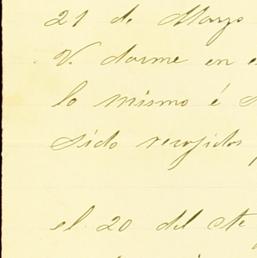 21 de Mayo
V. darme en
lo mismo é
sido recojidos
el 20 del cte